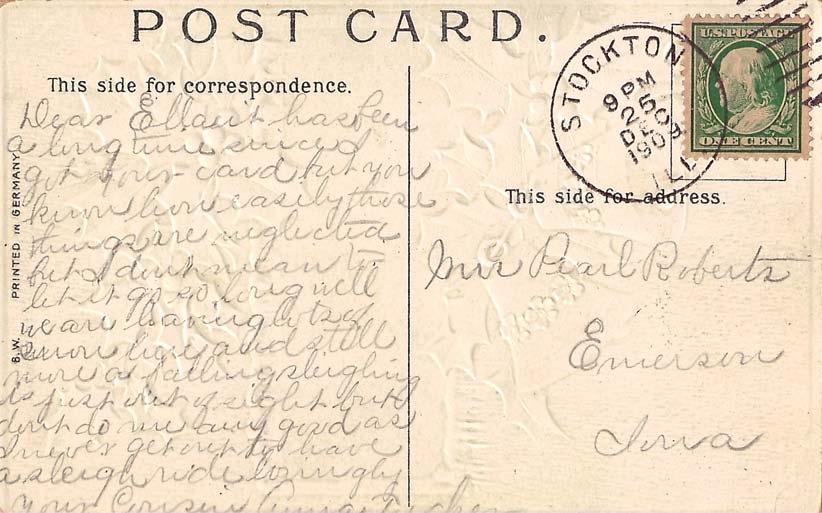 POST CARD.
This side for correspondence.
Dear Ella it has been
a long time since I
got your card but you
know how easily those
things are neglected
but I dont mean to
let it go so long well
we are having lots of
snow here and still
more a falling sleighing
is just out of sight but it
dont do me any good as
I never get out to have
a sleigh ride lovingly
your Cousin Anna
B. W. PRINTED IN GERMANY
STOCKTON
9 PM
25
DEC
1909
ILL.
U.S. POSTAGE
ONE CENT
This side for address.
Mrs Pearl Roberts
Emerson
Iowa